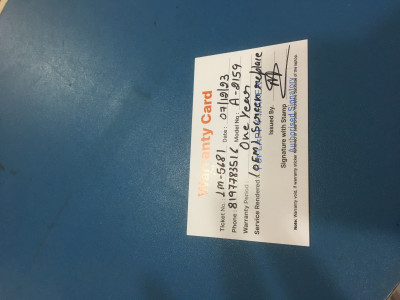 Warranty Card
Ticket No: LM-5681 Date: 07/12/23
Phone: 8197783516 Model No: A-2159
Warranty Period: One Year
Service Rendered: (OEM) Screen replace
Issued By.
Signature with Stamp
Authorised Signatory
Note: Warranty void, if warranty sticker